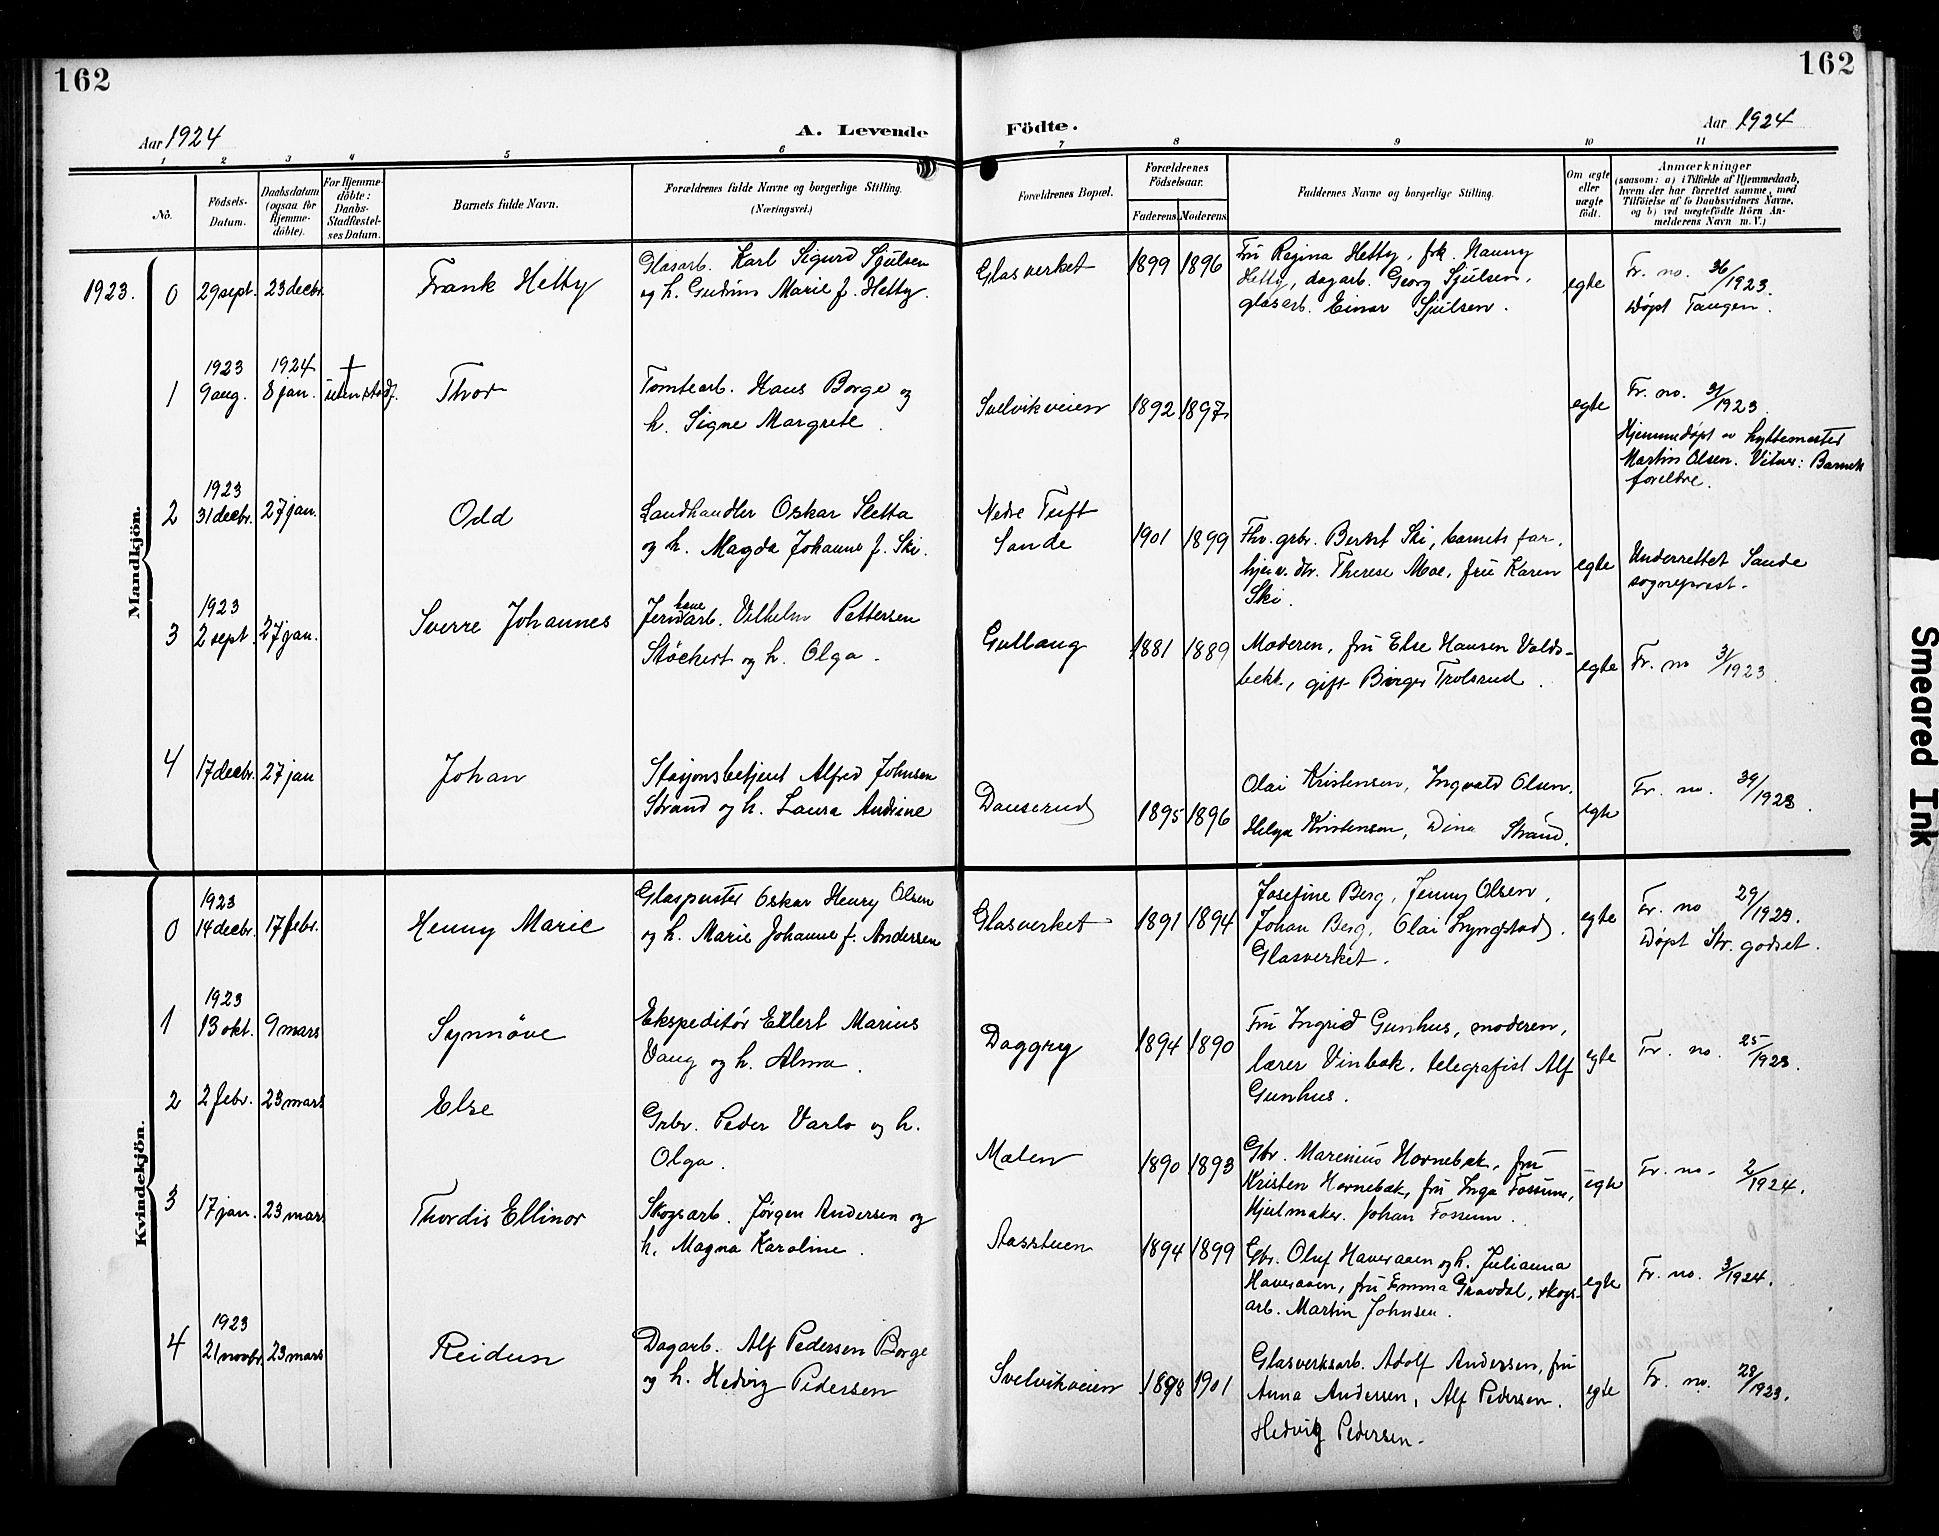 162
162
Aar 1924
A. Levende
Födte.
Aar 1924
1
2
3
4
5
6
7
8
9
10
11
No.
Födsels-
Datum.
Daabsdatum
(ogsaa for
Hjemme-
döbte).
For Hjemme-
döbte:
Daabs-
Stadfæstel-
ses Datum.
Barnets fulde Navn.
Forældrenes fulde Navne og borgerlige Stilling.
(Næringsvei.)
Forældrenes Bopæl.
Forældrenes
Födselsaar.
Faderens
Moderens
Faddernes Navne og borgerlige Stilling.
Om ægte
eller
uægte
födt.
Anmærkninger
(saasom: a) i Tilfælde af Hjemmedaab,
hvem der har forrettet samme, med
Tilföielse af to Daabsvidners Navne,
og b) ved uægtefödte Börn An-
melderens Navn m. V.)
Mandkjön.
1923. 0 29 sept. 23 decbr. Frank Hetty
Glasarb. Karl Sigurd Sjulsen
og h. Gudrun Marie f. Hetty.
Glasverket 1899 1896
Fru Regina Hetty, frk. Nanny
Hetty, dagarb. Georg Sjulsen,
glasarb. Einar Sjulsen.
egte
Fr. no. 36/1923.
Døpt Tangen.
1923 1924 +
1 9 aug. 8 jan. uten stadf. Thor
Tomtearb. Hans Borge og
h. Signe Margrete.
Svelvikveien 1892 1897
egte
Fr. no. 21/1923
Hjemmedøpt av hyttemester
Martin Olsen. Vitner: Barnets
foreldre.
1923
2 31 decbr. 27 jan. Odd
Landhandler Oskar Sletta
og h. Magda Johanne f. Ski.
Nedre Tuft
Sande
1901 1899
Fhv. grbr. Bernt Ski, barnets far,
hjemv. dtr. Therese Moe, frue Karen
Ski.
egte
Underrettet Sande
sogneprest.
1923
3 2 sept. 27 jan. Sverre Johannes
bane
Jernarb. Vilhelm Pettersen
Støckert og h. Olga.
Gullaug 1881 1889
Moderen, fru Else Hansen Valds-
bekk, gift Birger Trolsrud.
egte
Fr. no 31/1923.
4 17 decbr. 27 jan Johan
Stasjonsbetjent Alfred Johnsen
Strand og h. Laura Andrine
Dauserud 1895 1896
Olai Kristensen, Ingvald Olsen,
Helga Kristensen, Dina Strand.
egte
Fr. no. 39/1923.
Kvindekjön.
1923
0 14 decbr. 17 febr. Henny Marie
Glaspuster Oskar Henry Olsen
og h. Marie Johanne f. Andersen
Glasverket 1891 1894
Josefine Berg, Jenny Olsen,
Johan Berg, Olai Lyngstad,
Glasverket.
egte
Fr. no 29/1923.
Døpt Str. godset.
1923
1 13 okt. 9 mars Synnöve
Ekspeditør Ellert Marius
Vang og h. Alma.
Daggry 1894 1890
Fru Ingrid Gunhus, moderen,
lærer Vinbæk, telegrafist Alf
Gunhus.
egte
Fr. no. 25/1923.
2 2 febr. 23 mars Else
Grbr. Peder Varlo og h.
Olga.
Malen 1890 1893
Gbr. Marenius Hornebæk, fru
Kristen Hornebæk, fru Inga Fossum,
Hjulmaker Johan Fossum.
egte
Fr. no. 2/1924.
3 17 jan. 23 mars Thordis Ellinor
Skogsarb. Jørgen Andersen og
h. Magna Karoline.
Aasstuen 1894 1899
Gbr. Oluf Haveraaen og h. Julianna
Haveraaen, fru Emma Gravdal, skogs-
arb. Martin Johnsen.
egte
Fr. no. 3/1924.
1923
4 21 novbr. 23 mars Reidun
Dagarb. Alf Pedersen Borge
og h. Hedvig Pedersen
Svelvikveien 1898 1901
Glasverksarb. Adolf Andersen, fru
Anna Andersen, Alf Pedersen,
Hedvig Pedersen.
egte
Fr. no. 28/1923.
Smeared Ink